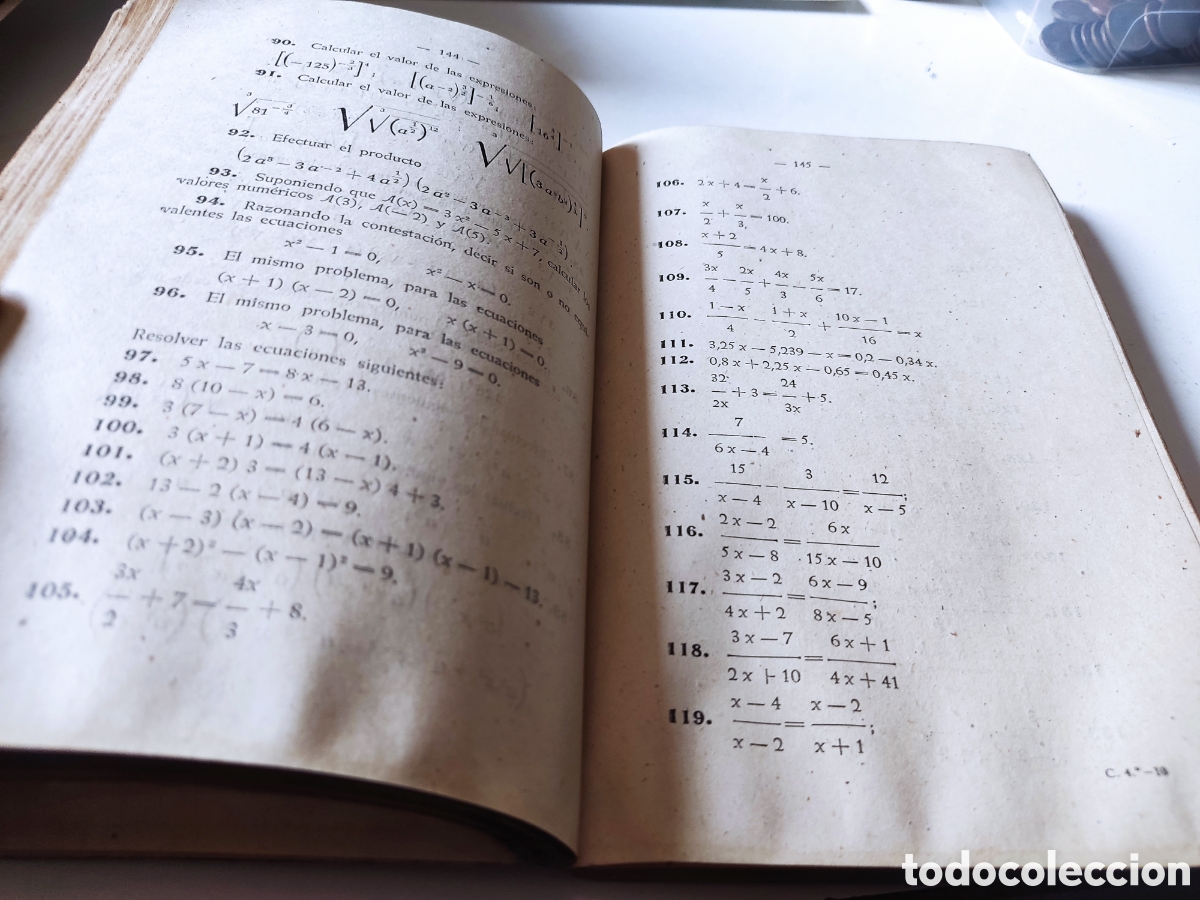 — 144 —
90. Calcular el valor de las expresiones:
[(—125)^{-2/3}]^4; [(a^{-2})^{3/2}]^{-1/6};
91. Calcular el valor de las expresiones:
92. Efectuar el producto
(2 a³ — 3 a⁻² + 4 a^{1/2}) (2 a² — 3 a⁻³ + 3 a^{-1/2}).
93. Suponiendo que A(x) = 3 x² — 5 x + 7, calcular los
valores numéricos A(3), A(— 2) y A(5).
94. Razonando la contestación, decir si son o no equi-
valentes las ecuaciones
x² — 1 = 0, x² — x = 0.
95. El mismo problema, para las ecuaciones
(x + 1) (x — 2) = 0, x (x + 1) = 0.
96. El mismo problema, para las ecuaciones
x — 3 = 0, x² — 9 = 0.
Resolver las ecuaciones siguientes:
97. 5 x — 7 = 8 x — 13.
98. 8 (10 — x) = 6.
99. 3 (7 — x) = 4 (6 — x).
100. 3 (x + 1) = 4 (x — 1).
101. (x + 2) 3 = (13 — x) 4 + 3.
102. 13 — 2 (x — 4) = 9.
103. (x — 3) (x — 2) = (x + 1) (x — 1) — 13.
104. (x + 2)² — (x — 1)² = 9.
105. 3x/2 + 7 = 4x/3 + 8.
— 145 —
106. 2 x + 4 = x/2 + 6.
107. x/2 + x/3 = 100.
108. x + 2/5 = 4 x + 8.
109. 3x/4 — 2x/5 + 4x/3 — 5x/6 = 17.
110. 1 — x/4 — 1 + x/2 + 10 x — 1/16 = x
111. 3,25 x — 5,239 — x = 0,2 — 0,34 x.
112. 0,8 x + 2,25 x — 0,65 = 0,45 x.
113. 32/2x + 3 = 24/3x + 5.
114. 7/6 x — 4 = 5.
115. 15/x — 4 — 3/x — 10 = 12/x — 5;
116. 2 x — 2/5 x — 8 = 6 x/15 x — 10
117. 3 x — 2/4 x + 2 = 6 x — 9/8 x — 5;
118. 3 x — 7/2 x + 10 = 6 x + 1/4 x + 41
119. x — 4/x — 2 = x — 2/x + 1;
C. 4.º — 10
todocoleccion